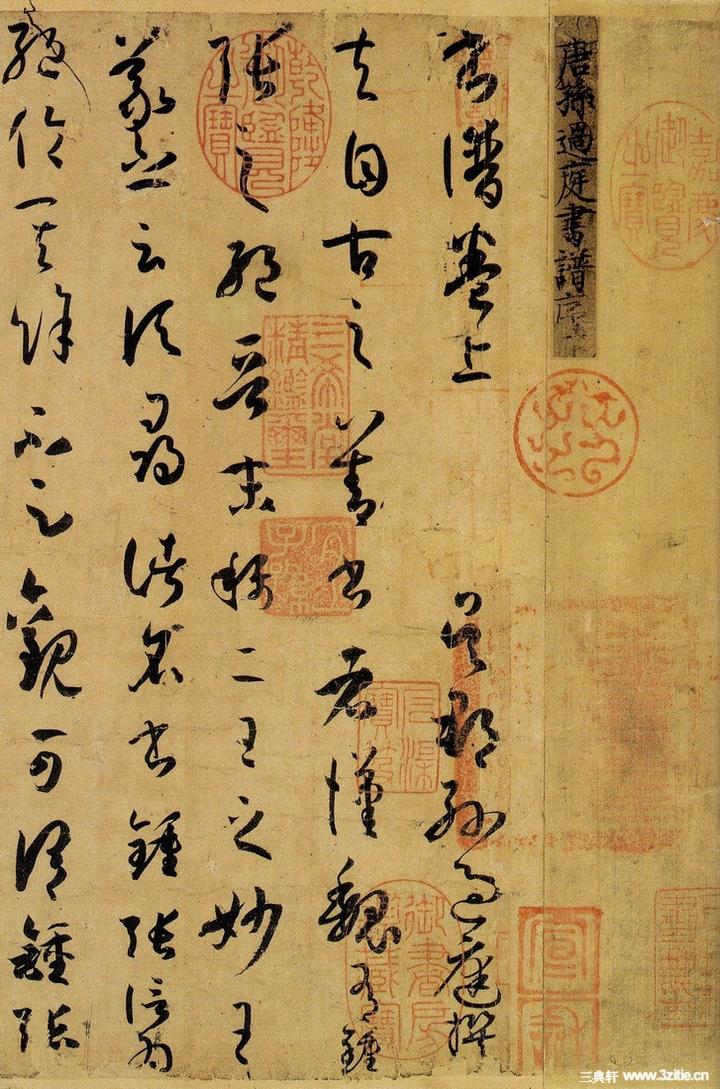 嘉慶御覽之寶
唐孫過庭書譜序
書譜卷上 吳郡孫過庭撰
夫自古之善書者漢魏有鍾
張之絕晉末稱二王之妙王
羲之云頃尋諸名書鍾張信為
絕倫其餘不足觀可謂鍾張
乾隆御覽之寶
三希堂精鑑璽
宜子孫
宣和
三典轩 www.3zitie.cn